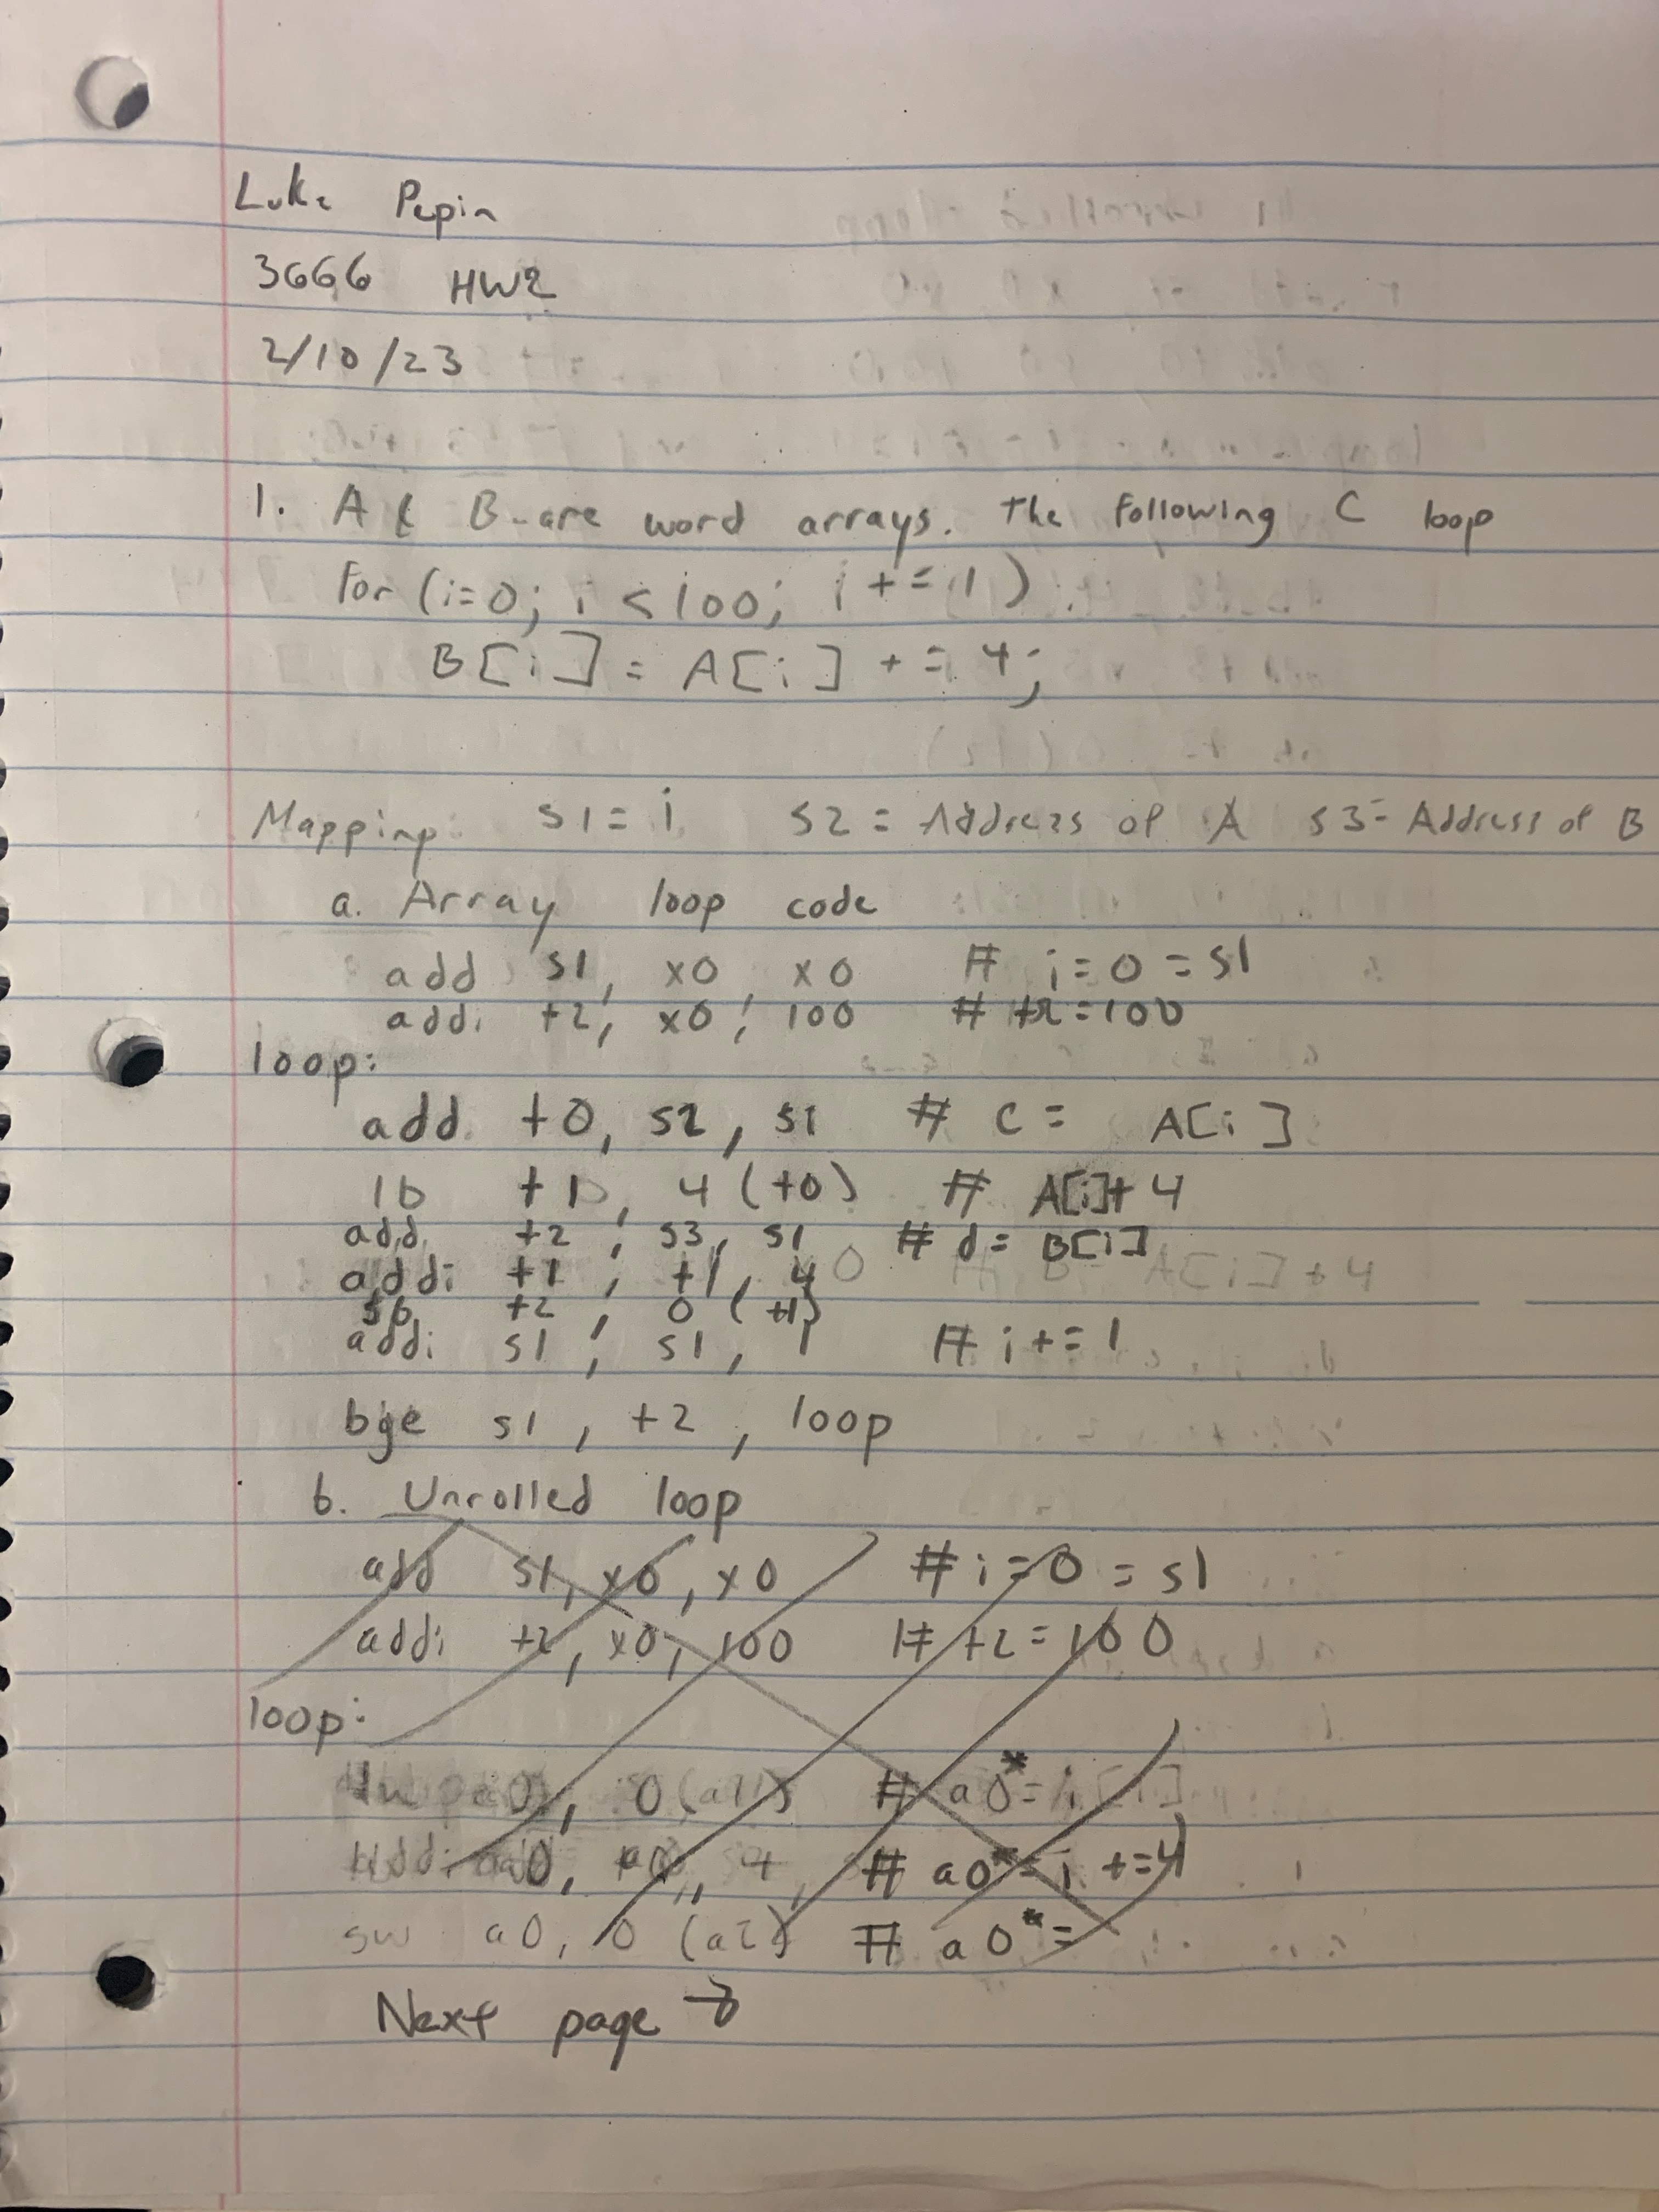 Luke Pepin
3666 HW2
2/10/23
1. A & B are word arrays. The following C loop
For (i=0; i < 100; i += 1)
B[i] = A[i] += 4;
Mapping: s1 = i s2 = Address of A s3 = Address of B
a. Array loop code
add s1, x0, x0 # i=0 = s1
addi t2, x0, 100 # t2 = 100
loop:
add t0, s2, s1 # c = A[i]
lb t1, 4 (t0) # A[i]+ 4
add t2, s3, s1 # d = B[i]
addi t1, t1, 4
sb t2, 0 (t1)
addi s1, s1, 1 # i += 1
bge s1, t2, loop
b. Unrolled loop
add s1, x0, x0 # i=0 = s1
addi t2, x0, 100 # t2 = 100
loop:
0, 0(a1) # a0* = i
addi a0, a0, 4 # a0* = i +=4
sw a0, 0 (a2) # a0* =
Next page →